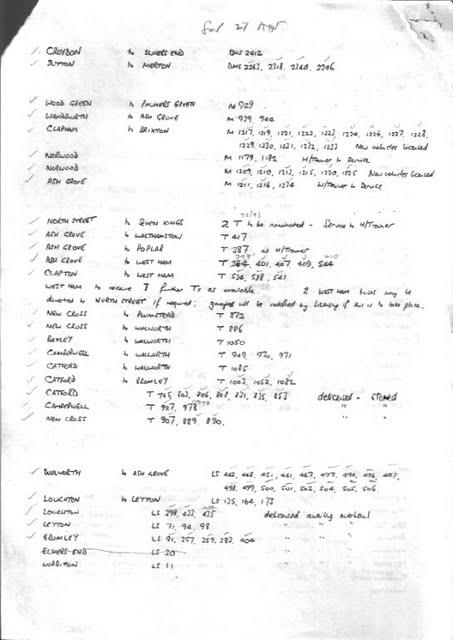 Sat 27 APR
CROYDON to ELMERS END DMS 2412
SUTTON to MERTON DMS 2263, 2318, 2340, 2246
WOOD GREEN to PALMERS GREEN M 929
WANDSWORTH to ASH GROVE M 939, 944
CLAPHAM to BRIXTON M 1217, 1219, 1221, 1222, 1223, 1224, 1226, 1227, 1228,
1229, 1230, 1231, 1232, 1233 New vehicles licensed
NORWOOD M 1179, 1182 H/Trainer to Service
NORWOOD M 1209, 1210, 1213, 1215, 1220, 1225 New vehicles licensed
ASH GROVE M 1211, 1216, 1234 H/Trainer to Service
NORTH STREET to SEVEN KINGS 2 T to be nominated - Service to H/Trainer
ASH GROVE to WALTHAMSTOW T 417
ASH GROVE to POPLAR T 387 as H/Trainer
ASH GROVE to WEST HAM T 401, 407, 409, 544
CLAPTON to WEST HAM T 534, 538, 541
WEST HAM to receive 7 further Ts as available. 2 WEST HAM buses may be
donated to NORTH STREET if required; garages will be notified by if this is to take place.
NEW CROSS to PLUMSTEAD T 872
NEW CROSS to WALWORTH T 886
BEXLEY to WALWORTH T 1050
CAMBERWELL to WALWORTH T 949, 970, 971
CATFORD to WALWORTH T 1085
CATFORD to BROMLEY T 1003, 1052, 1082
CATFORD T 765, 803, 806, 808, 831, 835, 853 delicensed - stored
CAMBERWELL T 927, 978 " "
NEW CROSS T 807, 889, 890. " "
WALWORTH to ASH GROVE LS 442, 448, 451, 461, 467, 477, 494, 496, 497,
498, 499, 500, 501, 502, 504, 505, 506
LOUGHTON to LEYTON LS 135, 164, 173
LOUGHTON LS 398, 433, 435 delicensed awaiting overhaul
LEYTON LS 71, 94, 98 " "
BROMLEY LS 91, 257, 259, 283, 404 "
ELMERS END LS 20 "
NORBITON LS 11 "